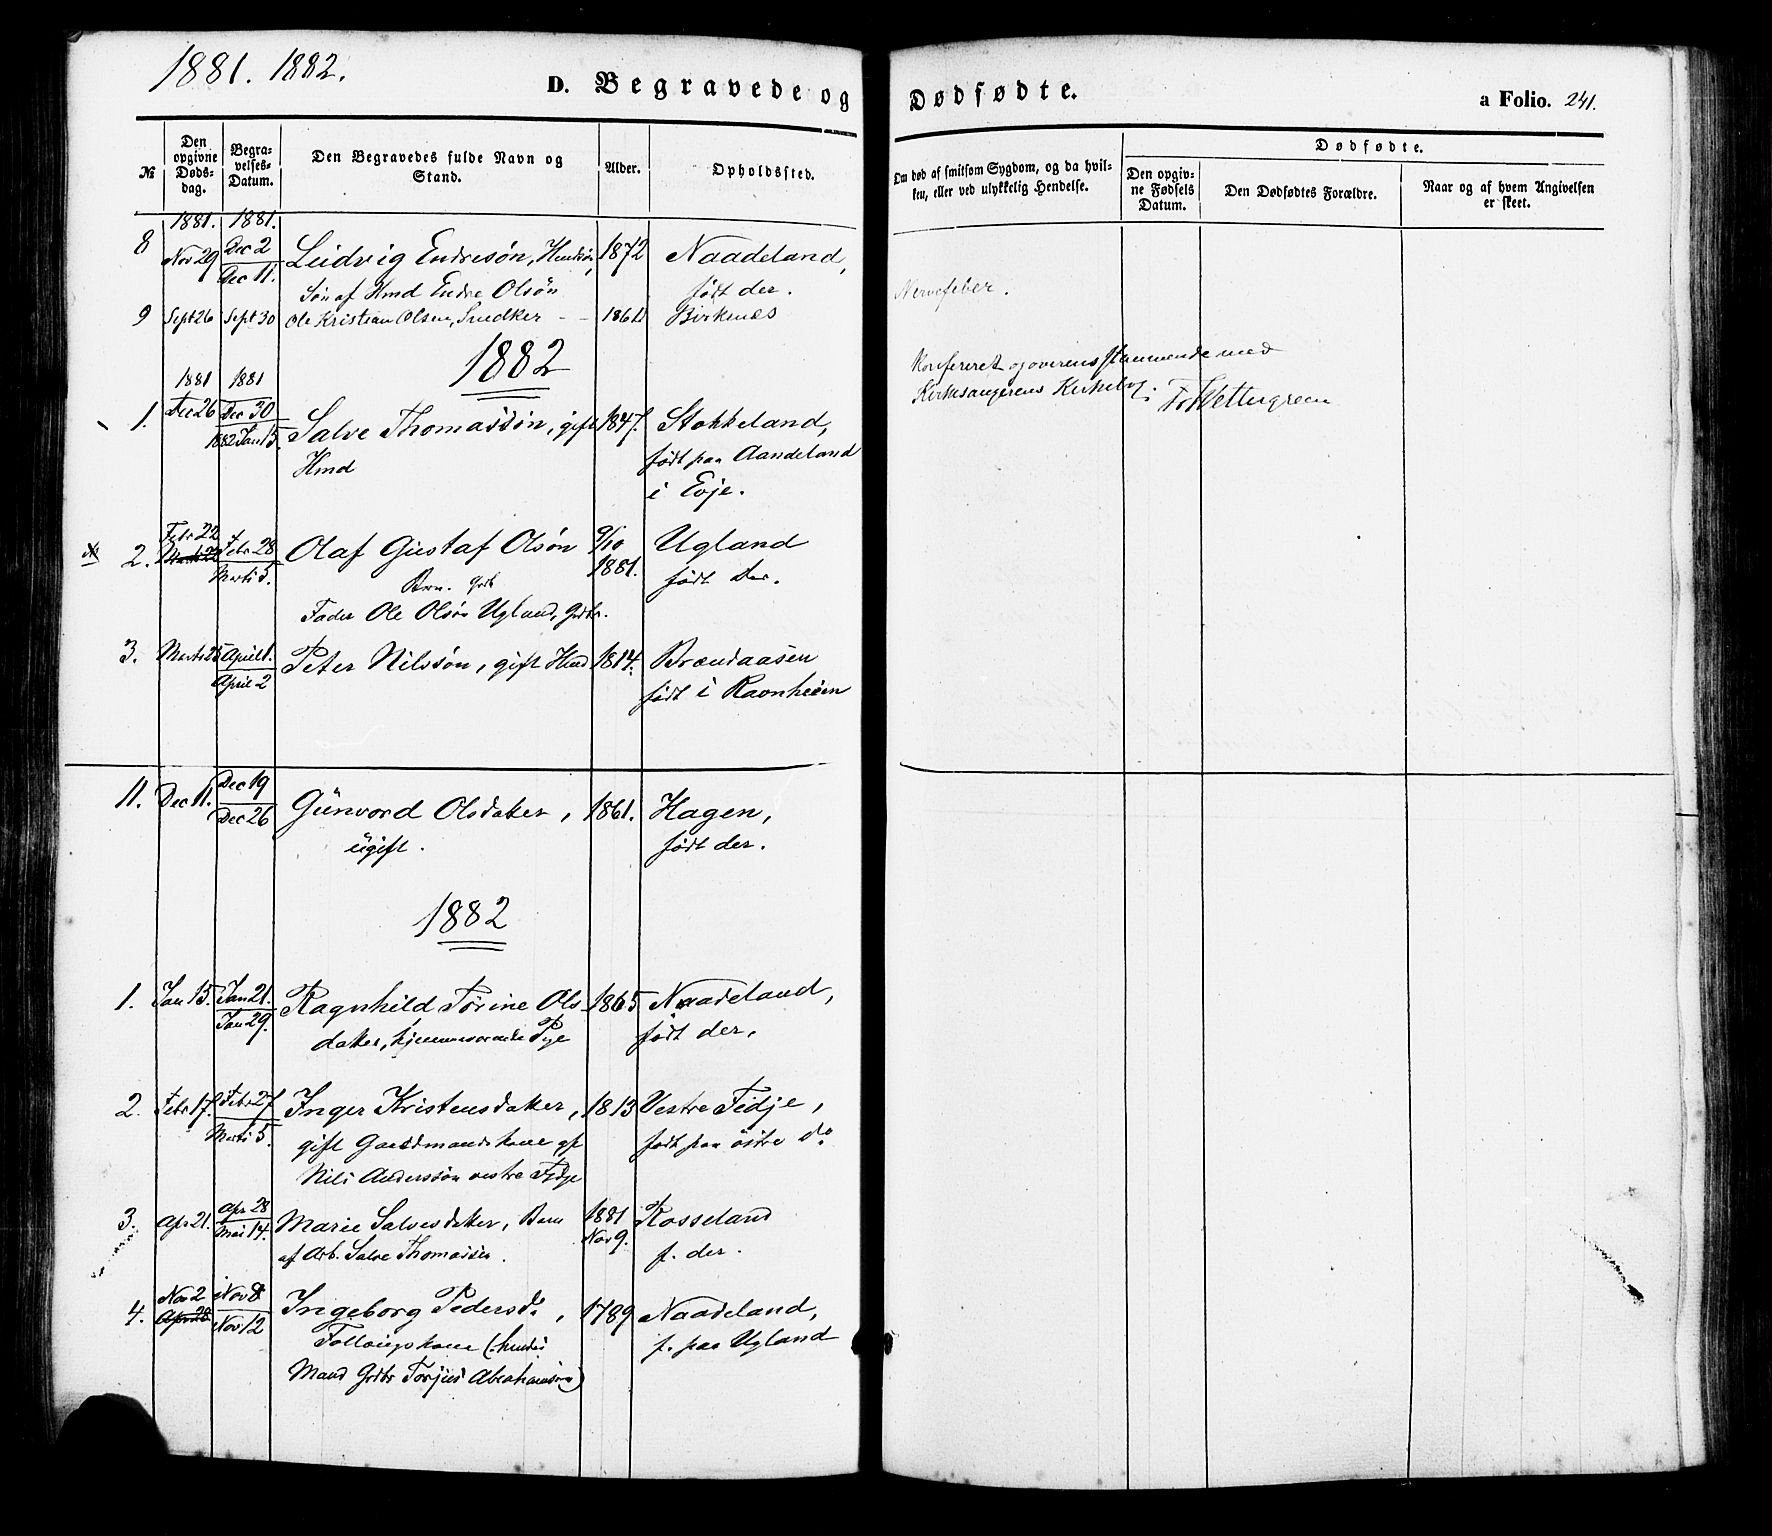 1881. 1882.
D. Begravede og Dødfødte.
a Folio. 241.
№
Den opgivne Døds-dag.
Begra-velses-Datum.
Den Begravedes fulde Navn og Stand.
Alder.
Opholdssted.
Om død af smitsom Sygdom, og da hvil-
ken, eller ved ulykkelig Hendelse.
Dødfødte.
Den opgiv-ne Fødsels Datum.
Den Dødfødtes Forældre.
Naar og af hvem Angivelsen er skeet.
1881. 1881.
8 Nov 29 Dec 2 Ludvig Endresøn, 1872 Naadeland,
Dec 11. Søn af Hmd Endre Olsøn født der. Nervefeber.
9 Sept 26 Sept 30 Ole Kristian Olsen, Snedker - - 1861 Birkenes
1882
Konfereret og overensstemmende med
Kirkesangerens Kirkebog.
1881 1881
1. Dec 26 Dec 30 Salve Thomassøn, gift 1847. Stokkeland,
1882 Jan 15. Hmd født paa Aandeland
i Evje.
Febr 22
2. Febr 28 Olaf Gustaf Olsøn 9/10 Ugland
Marts 5. Brn. 1881. født der.
Fader Ole Olsøn Ugland, Grdbr.
3. Marts 25 April 1. Peter Nilssøn, gift Hmd 1814. Brændaasen
April 2 født i Ravnheien
11. Dec 11. Dec 19 Gunvord Olsdatter, 1861. Hagen,
Dec 26 ugift. født der.
1882
1. Jan 15. Jan 21. Ragnhild Tørine Ols- 1865 Naadeland,
Jan 29. datter, hjemmeværende Pige født der.
2. Febr 17. Febr 27 Inger Kristensdatter, 1813 Vestre Fidje,
Marts 5. gift Gaardmandskone gf født paa østre do
Nils Anderssøn vestre Fidje
3. Apr 21. Apr 28 Marie Salvesdatter, Barn 1881 Rosseland
Mai 14. af Arb. Salve Thomassen. Nov 9. f. der.
Nov 2
4. Apr 28 Nov 8 Ingeborg Pedersd., 1789 Naadeland,
Nov 12 Føllaugskone (hendes f. paa Ugland
Mand Grdbr Torjus Abrahamsøn)